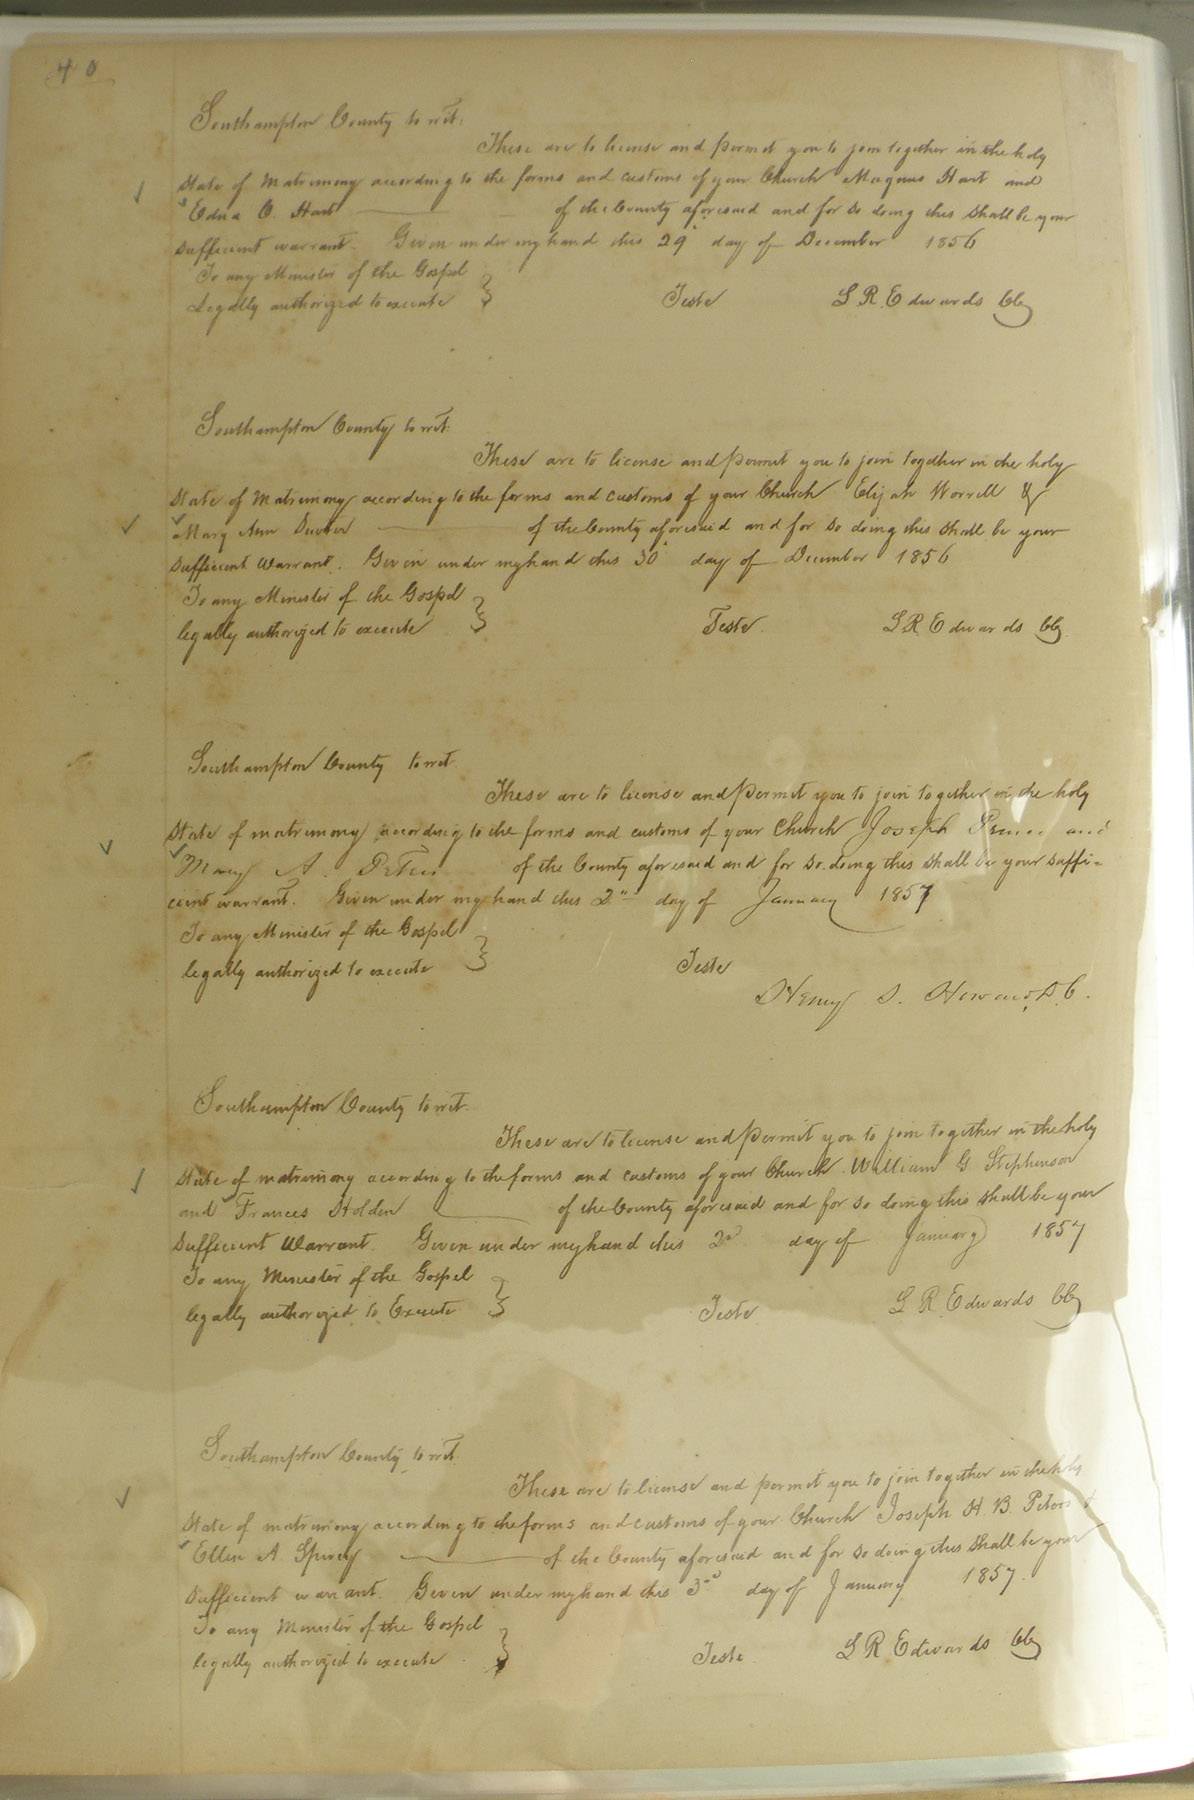 40
Southampton County to wit:
These are to license and permit you to join together in the holy
State of Matrimony according to the forms and customs of your Church Magnus Hart and
Edna O. Hart of the County aforesaid and for so doing this shall be your
sufficient warrant. Given under my hand this 29 day of December 1856
To any Minister of the Gospel
Legally authorized to execute } Teste L R. Edwards Clk
Southampton County to wit:
These are to license and permit you to join together in the holy
State of Matrimony according to the forms and customs of your Church Elijah Worrell &
Mary Ann of the County aforesaid and for so doing this shall be your
sufficient Warrant. Given under my hand this 30 day of December 1856
To any Minister of the Gospel
legally authorized to execute } Teste. L R Edwards Clk
Southampton County to wit
These are to license and permit you to join together in the holy
State of matrimony according to the forms and customs of your Church Joseph and
Mary A. of the County aforesaid and for so doing this shall be your suffi=
cient warrant. Given under my hand this 2nd day of January 1857
To any Minister of the Gospel
legally authorized to execute } Teste
Henry S. D. C.
Southampton County to wit
These are to license and permit you to join together in the holy
State of matrimony according to the forms and customs of your Church William G. Stephenson
and Frances Holden of the County aforesaid and for so doing this shall be your
sufficient Warrant. Given under my hand this 2d day of January 1857
To any Minister of the Gospel
legally authorized to Execute } Teste L R Edwards Clk
Southampton County to wit
These are to license and permit you to join together in the holy
State of matrimony according to the forms and customs of your Church Joseph H. B. Peters &
Ellen A. Spivey of the County aforesaid and for so doing this shall be your
sufficient warrant. Given under my hand this 3rd day of January 1857.
To any Minister of the Gospel
legally authorized to execute } Teste L R Edwards Clk